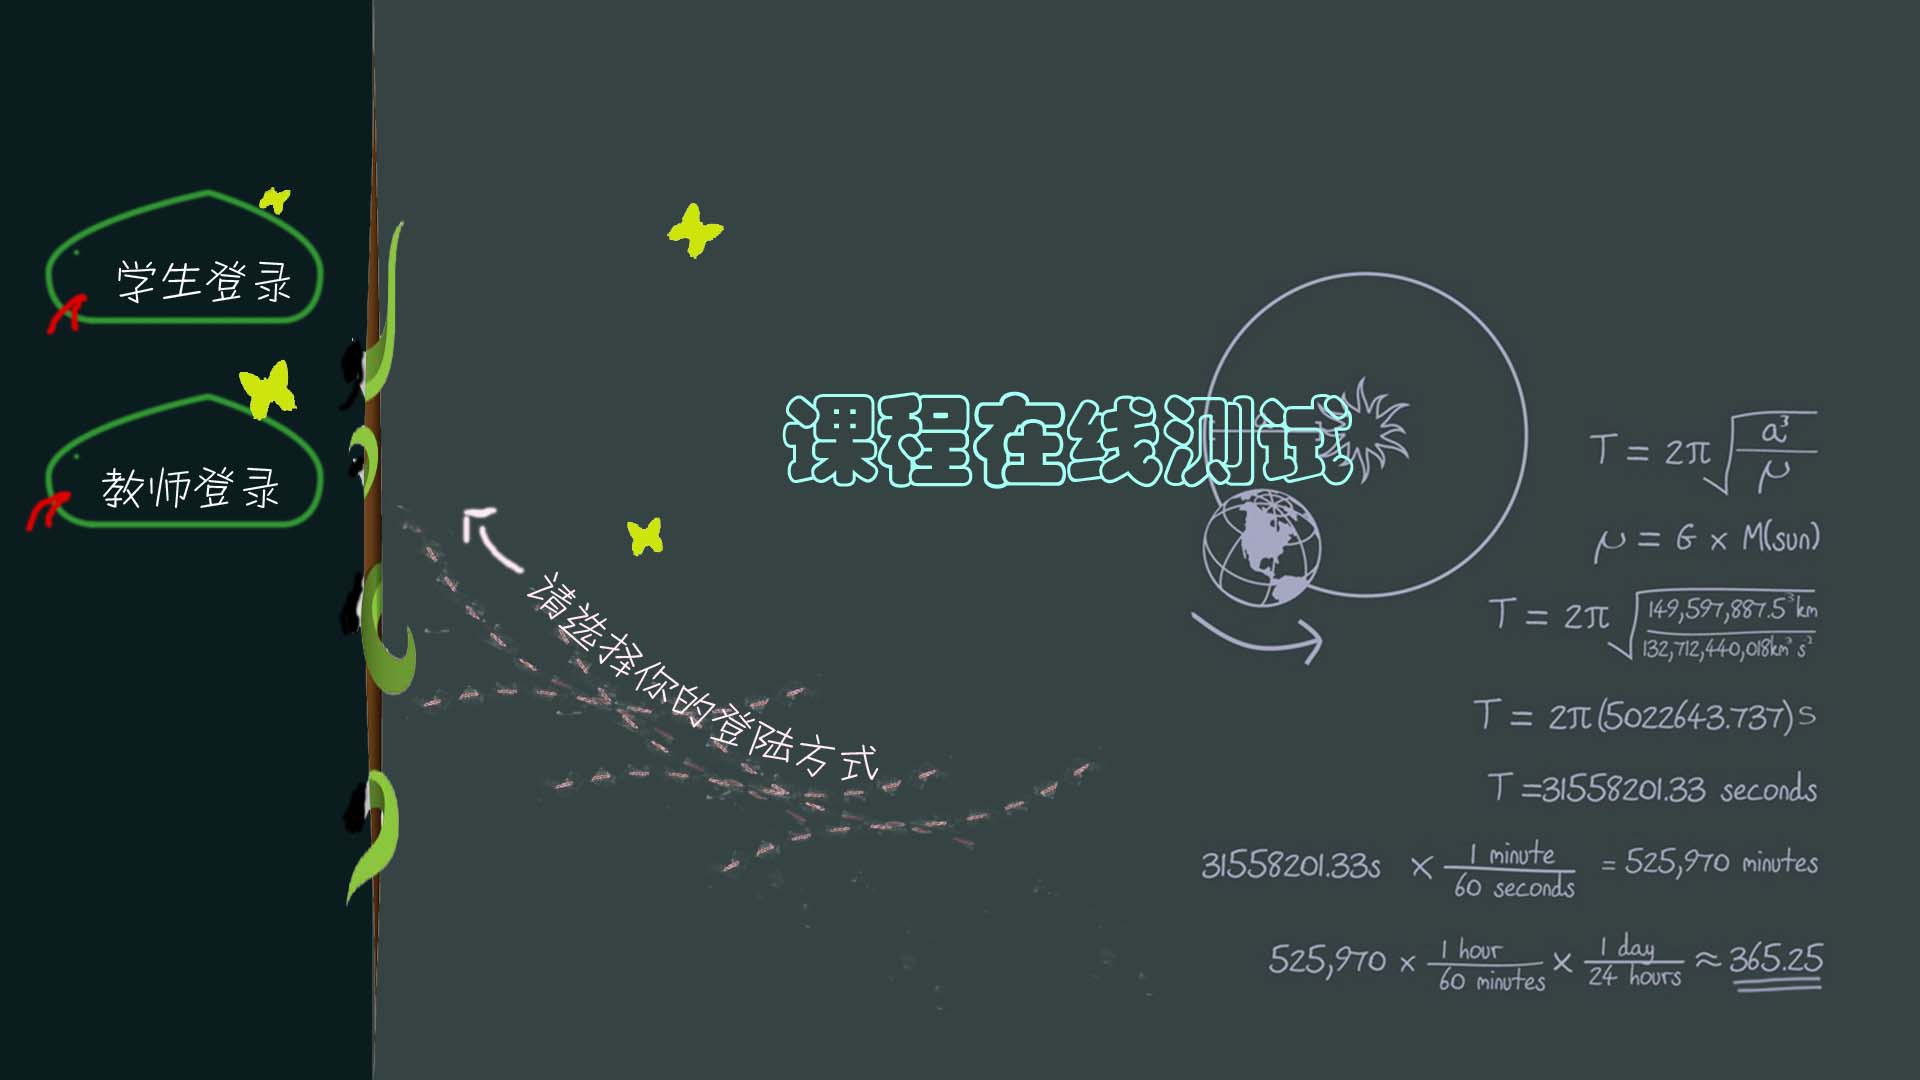 学生登录
教师登录
课程在线测试
请选择你的登陆方式
T = 2π√(a³/μ)
μ = G × M(sun)
T = 2π√(149,597,887.5³km/132,712,440,018km³s²)
T = 2π(5022643.737)s
T =31558201.33 seconds
31558201.33s × 1 minute/60 seconds = 525,970 minutes
525,970 × 1 hour/60 minutes × 1 day/24 hours ≈ 365.25